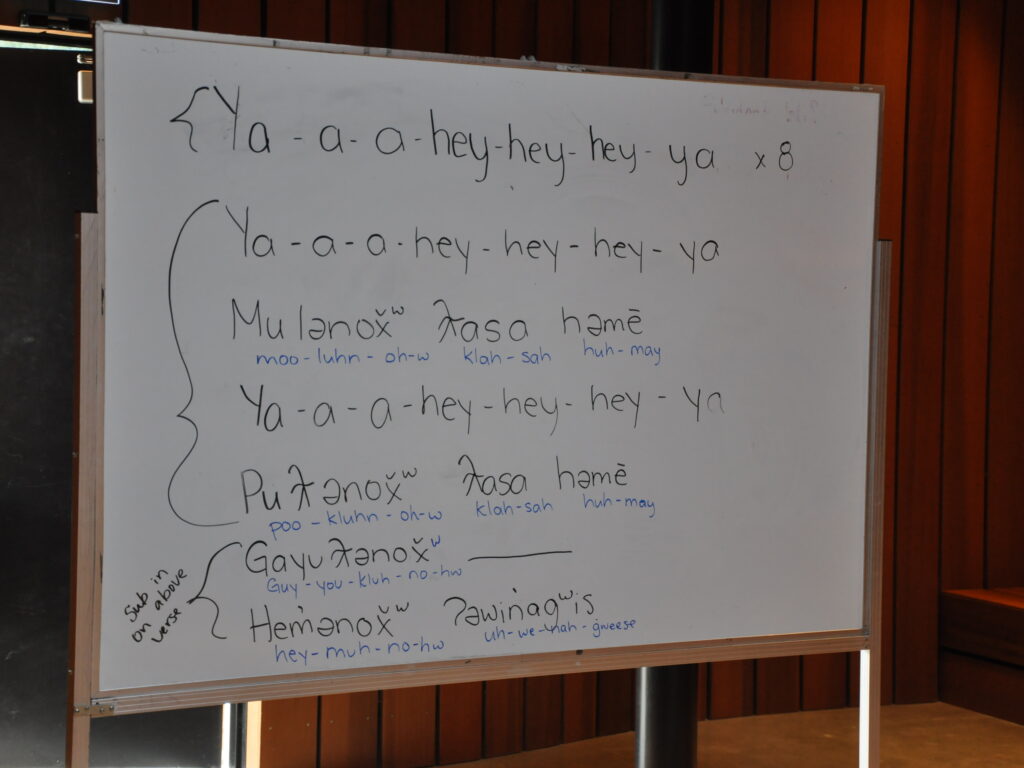 Ya - a - a - hey - hey - hey - ya x 8
Ya - a - a - hey - hey - hey - ya
Mulənox̌ʷ ƛasa həmē
moo - luhn - oh-w klah - sah huh - may
Ya - a - a - hey - hey - hey - ya
Puƛənox̌ʷ ƛasa həmē
poo - kluhn - oh-w klah-sah huh-may
Gayuƛənox̌ʷ
Guy - you - kluh - no - hw
Hem̓ənox̌ʷ ʔəwin̓agʷis
hey - muh - no - hw uh - we - nah - gweese
Sub in
on above
verse